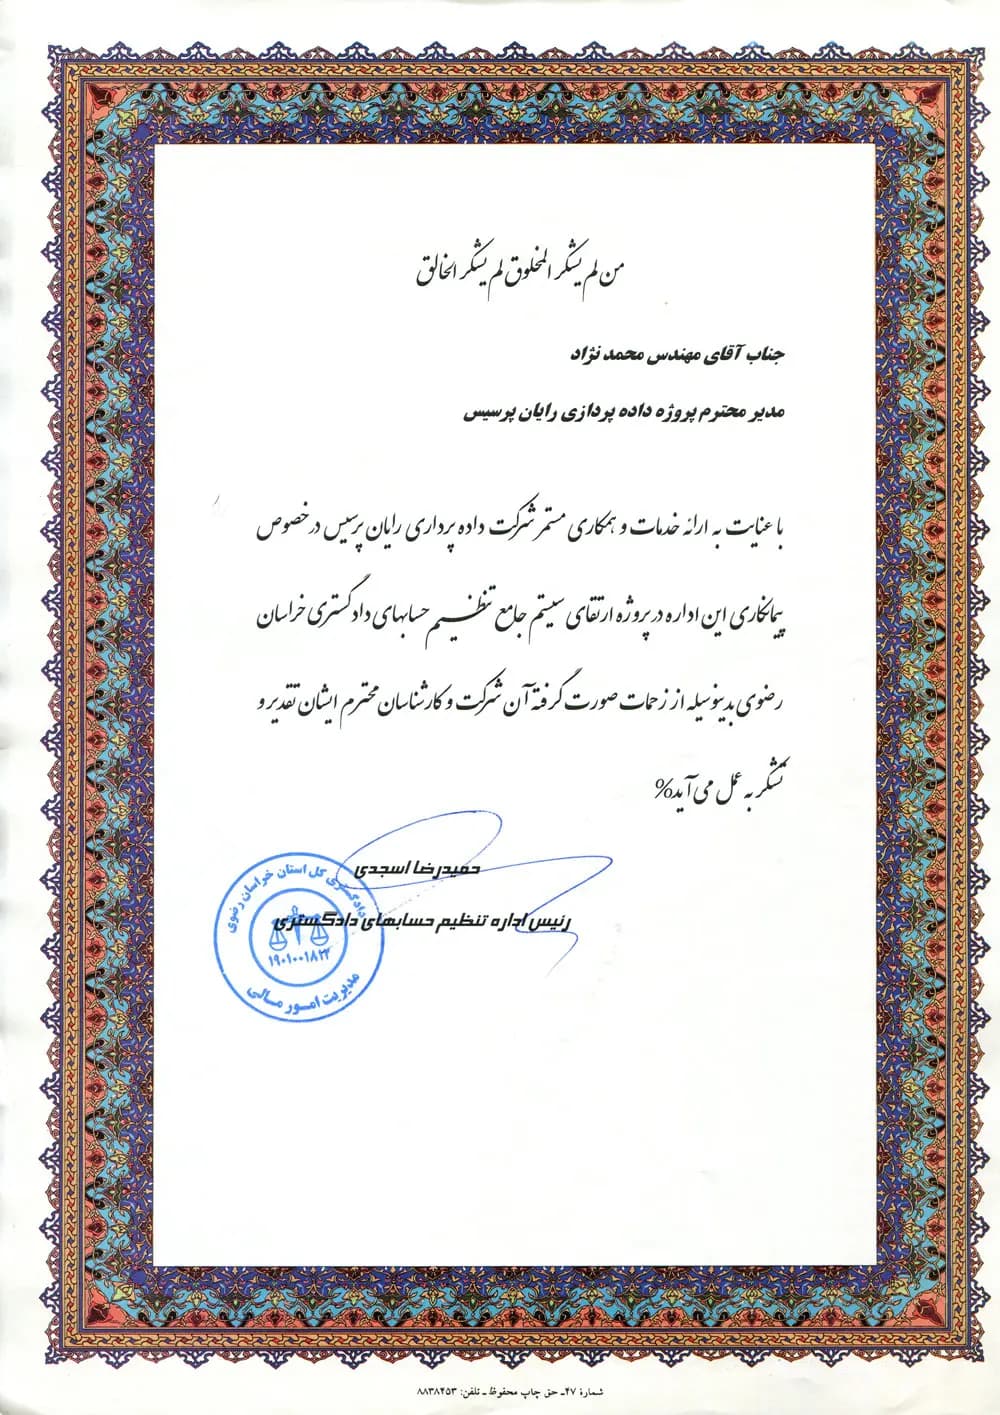 من لم یشکر المخلوق لم یشکر الخالق
جناب آقای مهندس محمد نژاد
مدیر محترم پروژه داده پردازی رایان پرسیس
با عنایت به ارائه خدمات و همکاری مستمر شرکت داده پردازی رایان پرسیس در خصوص
پیمانکاری این اداره در پروژه ارتقای سیستم جامع تنظیم حسابهای دادگستری خراسان
رضوی بدینوسیله از زحمات صورت گرفته آن شرکت و کارشناسان محترم ایشان تقدیر و
تشکر به عمل می آید%
حمیدرضا اسجدی
رئیس اداره تنظیم حسابهای دادگستری
دادگستری کل استان خراسان رضوی
۱۹۰۱۰۰۱۸۲۲
مدیریت امور مالی
شمارهٔ ۴۷ـ حق چاپ محفوظ ـ تلفن: ۸۸۳۸۴۵۳